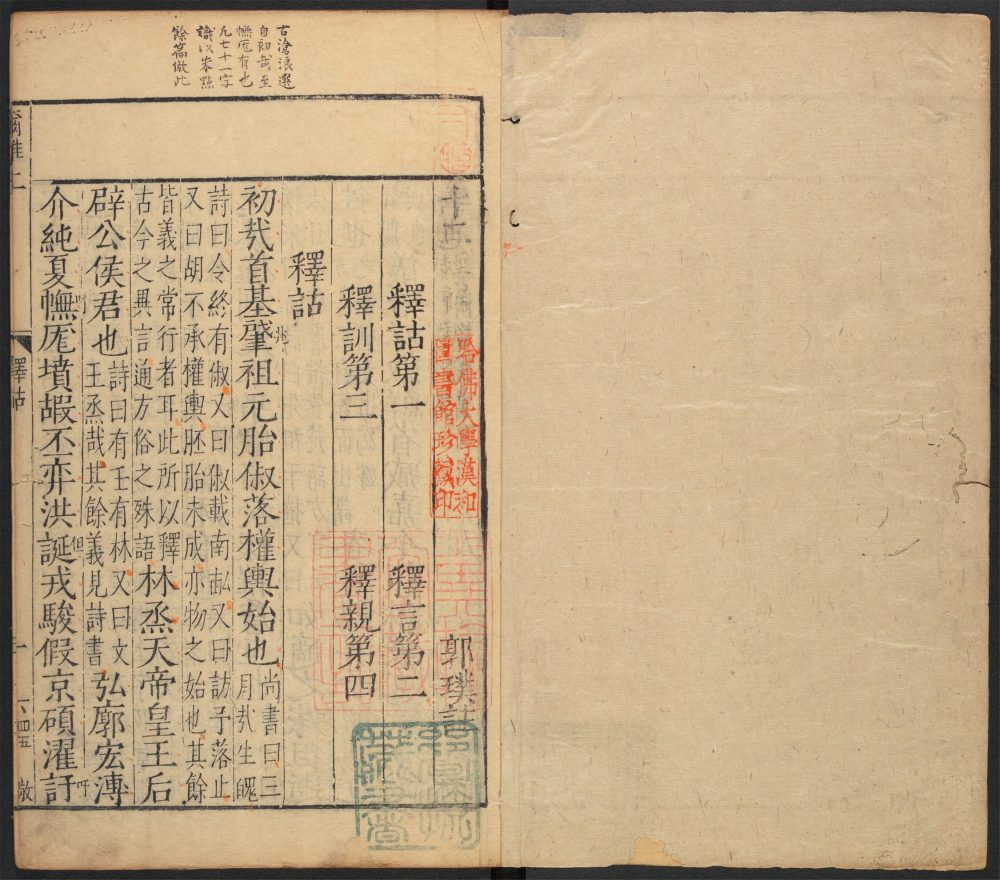 古滄浪選
自初哉至
幠厖有也
凡七十一字
識以朱點
餘篇倣此
郭璞註
哈佛大學漢和
圖書館珍藏印
釋詁第一 釋言第二
釋訓第三 釋親第四
釋詁
初哉首基肇祖元胎俶落權輿始也尚書曰三月哉生魄
詩曰令終有俶又曰俶載南畝又曰訪予落止
又曰胡不承權輿胚胎未成亦物之始也其餘
皆義之常行者耳此所以釋古今之異言通方俗之殊語林烝天帝皇王后
辟公侯君也詩曰有壬有林又曰文王烝哉其餘義見詩書弘廓宏溥
介純夏幠厖墳嘏丕弈洪誕戎駿假京碩濯訏
釋詁